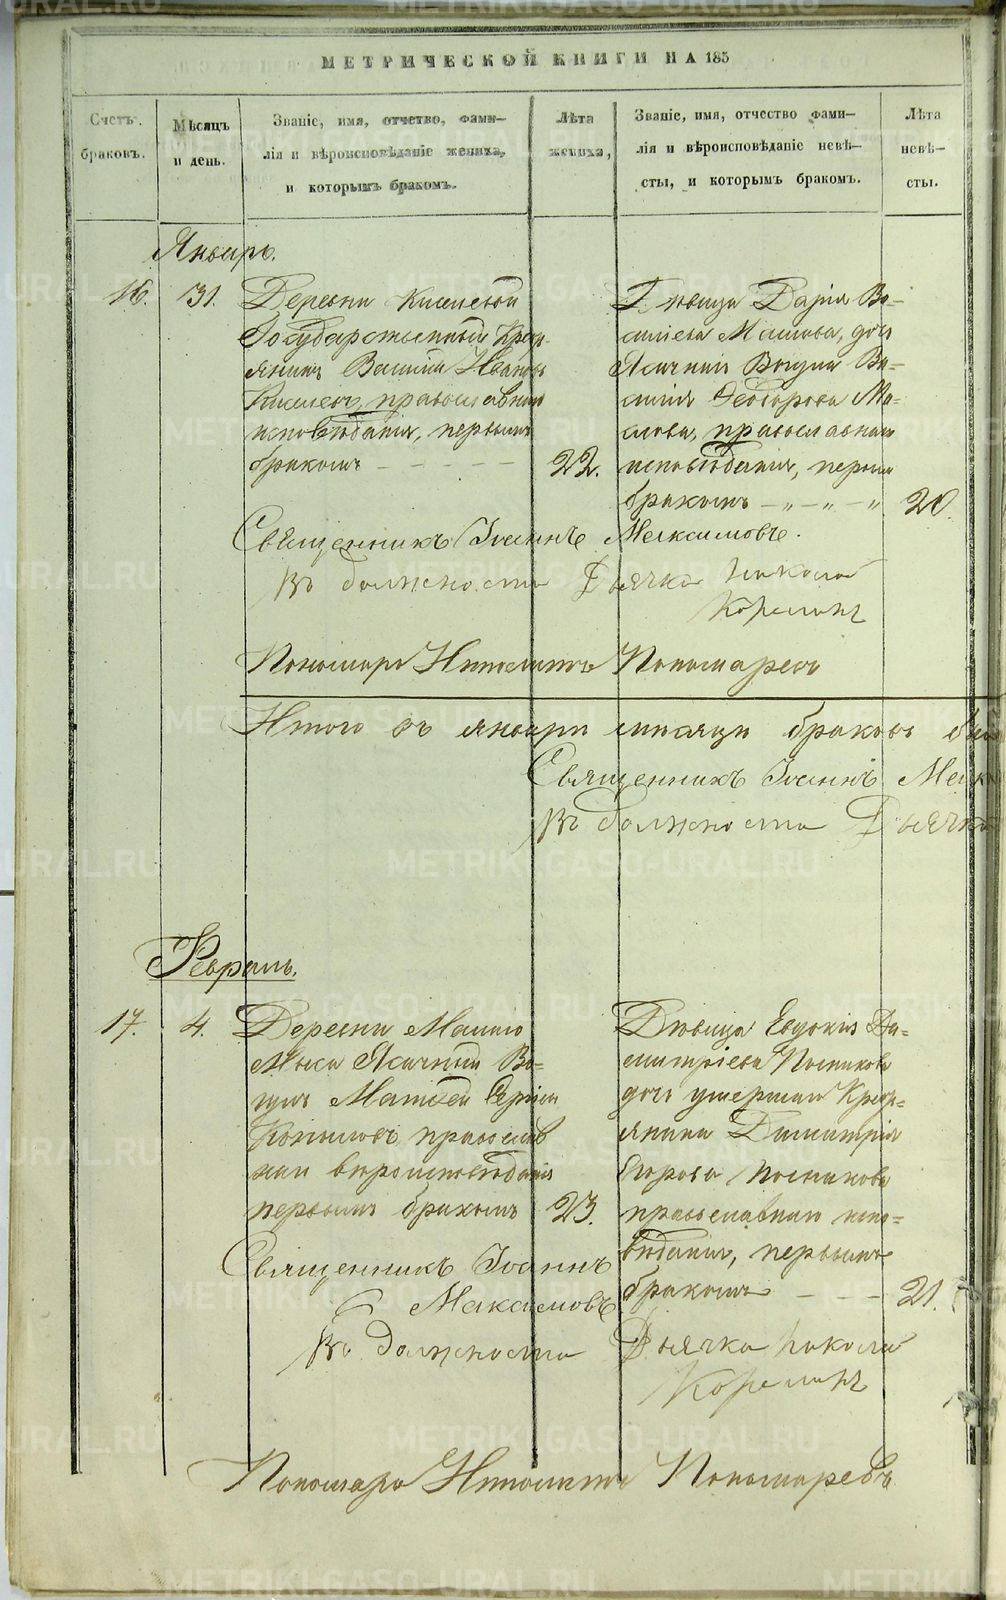 МЕТРИЧЕСКОЙ КНИГИ НА 185
Счетъ браковъ.
Мѣсяцъ и день.
Званіе, имя, отчетво, фами-
лія и вѣроисповѣданіе жениха,
и которымъ бракомъ.
Лѣта
жениха,
Званіе, имя, отчество фами-
лія и вѣроисповѣданіе невѣ-
сты, и которымъ бракомъ.
Лѣта
невѣ-
сты.
Январь.
16.
31.
Деревни Киселевой
Государственный Кресть-
янинъ Василій Ивановъ
Киселевъ, православнаго
исповѣданія, первымъ
бракомъ
22.
Дѣвица Дарія Ва-
сильева Маслова, дочь
Ясачнаго Вогула Ва-
силія Федорова Ма-
слова, православнаго
исповѣданія, первымъ
бракомъ
20.
Священникъ Іоаннъ Максимовъ.
Въ должности Дьячка Николай
Корелинъ
Пономарь Ипполитъ Пономаревъ
Итого въ январѣ мѣсяцѣ браковъ
Священникъ Іоаннъ Мак
Въ должности Дьячка
Февраль.
17.
4.
Деревни Малаго
Мыса Ясачный Во-
гулъ Матвей
Копыловъ православ
наго вѣроисповѣданія
первымъ бракомъ
23.
Дѣвица Евдокія Ди-
митріева Посникова
дочь умершаго Кресть-
янина Димитрія
Егорова Посникова
православнаго испо-
вѣданія, первымъ
бракомъ
21.
Священникъ Іоаннъ
Максимовъ
Въ должности Дьячка Николай
Корелинъ
Пономарь Ипполитъ Пономаревъ
METRIKI.GASO-URAL.RU